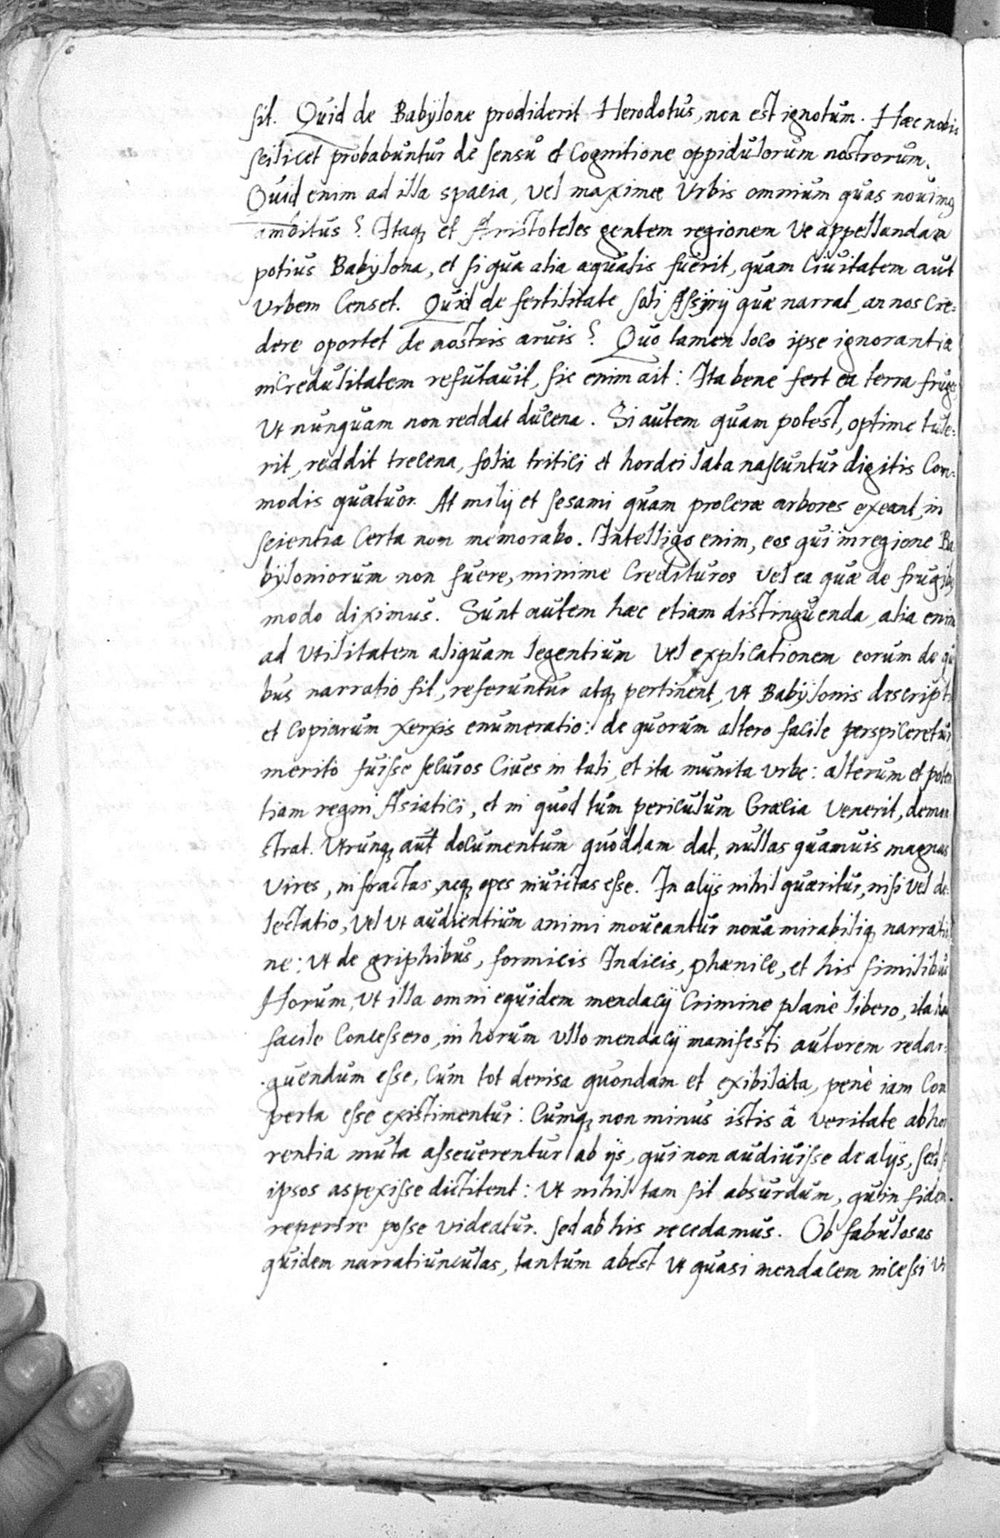 sit. Quid de Babÿlone prodiderit Herodotus, non est ignotum. Hæc nobis
scilicet probabuntur de sensu et cognitione oppidulorum nostrorum.
Quid enim ad illa spacia, vel maximæ Vrbis omnium quas nouimus
ambitus? Itaq; et Aristoteles gentem regionem ve appellandam
potius Babÿlona, et si qua alia æqualis fuerit, quam Ciuitatem aut
Vrbem Censet. Quid de fertilitate soli Assÿrij quæ narrat, an nos cre=
dere oportet de nostris aruis? Quo tamen loco ipse ignorantiæ
incredulitatem refutauit, sic enim ait: Ita bene fert ea terra fruges
Vt nunquam non reddat ducena. Si autem quam potest, optime tule=
rit, reddit trecena, folia tritici et hordei lata nascuntur digitis com=
modis quatuor. At milij et sesami quam proceræ arbores exeant, in
scientia certa non memorabo. Intelligo enim, eos qui in regione Ba
bÿloniorum non fuere, minime credituros vel ea quæ de frugibus
modo diximus. Sunt autem hæc etiam distinguenda, alia enim
ad Vtilitatem aliquam legentium vel explicationem eorum de qui
bus narratio sit, referuntur atq; pertinent, Vt Babÿlonis descripti
et copiarum xerxis enumeratio: de quorum altero facile perspiceretur
merito fuisse securos Ciues in tali, et ita munita vrbe: alterum et poten
tiam regni Asiatici, et in quod tum periculum Græcia venerit, demon
strat. Vtrunq; aut documentum quoddam dat, nullas quamuis magnas
Vires, infractas, neq; opes inuictas esse. In alijs nihil quæritur, nisi vel de
lectatio, Vel vt audientium animi moueantur noua mirabiliq; narratio
ne: Vt de griphibus, formicis Indicis, phænice, et his similibus
Horum, Vt illa omni equidem mendacij crimine planè libero, ita hau
facile concessero, in horum Vllo mendacij manifesti autorem redar=
guendum esse, Cum tot derisa quondam et exibilata, penè iam com
perta esse existimentur: Cumq; non minus istis â veritate abhor
rentia multa asseuerentur ab ijs, qui non audiuisse de alijs, sed s
ipsos aspexisse dictitent: Vt nihil tam sit absurdum, quin fidem
reperire posse videatur. Sed ab his recedamus. Ob fabulosas
quidem narratiunculas, tantum abest vt quasi mendacem incessi vi